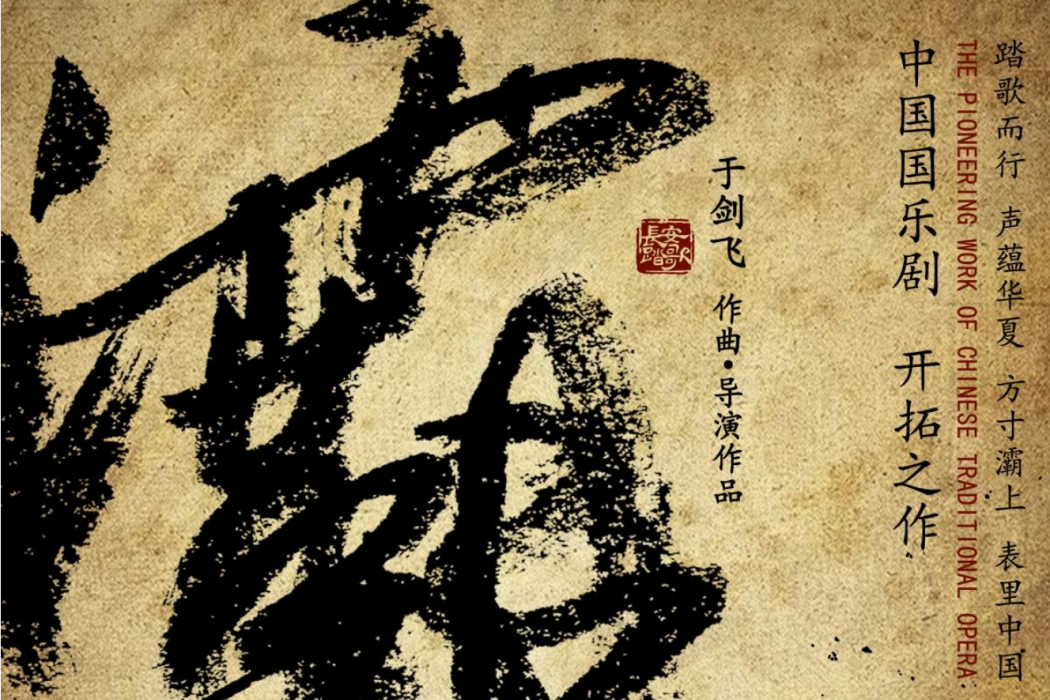 踏歌而行 声蕴华夏 方寸灞上 表里中国
THE PIONEERING WORK OF CHINESE TRADITIONAL OPERA
中国国乐剧 开拓之作
于剑飞 作曲·导演作品
長安踏歌
灞